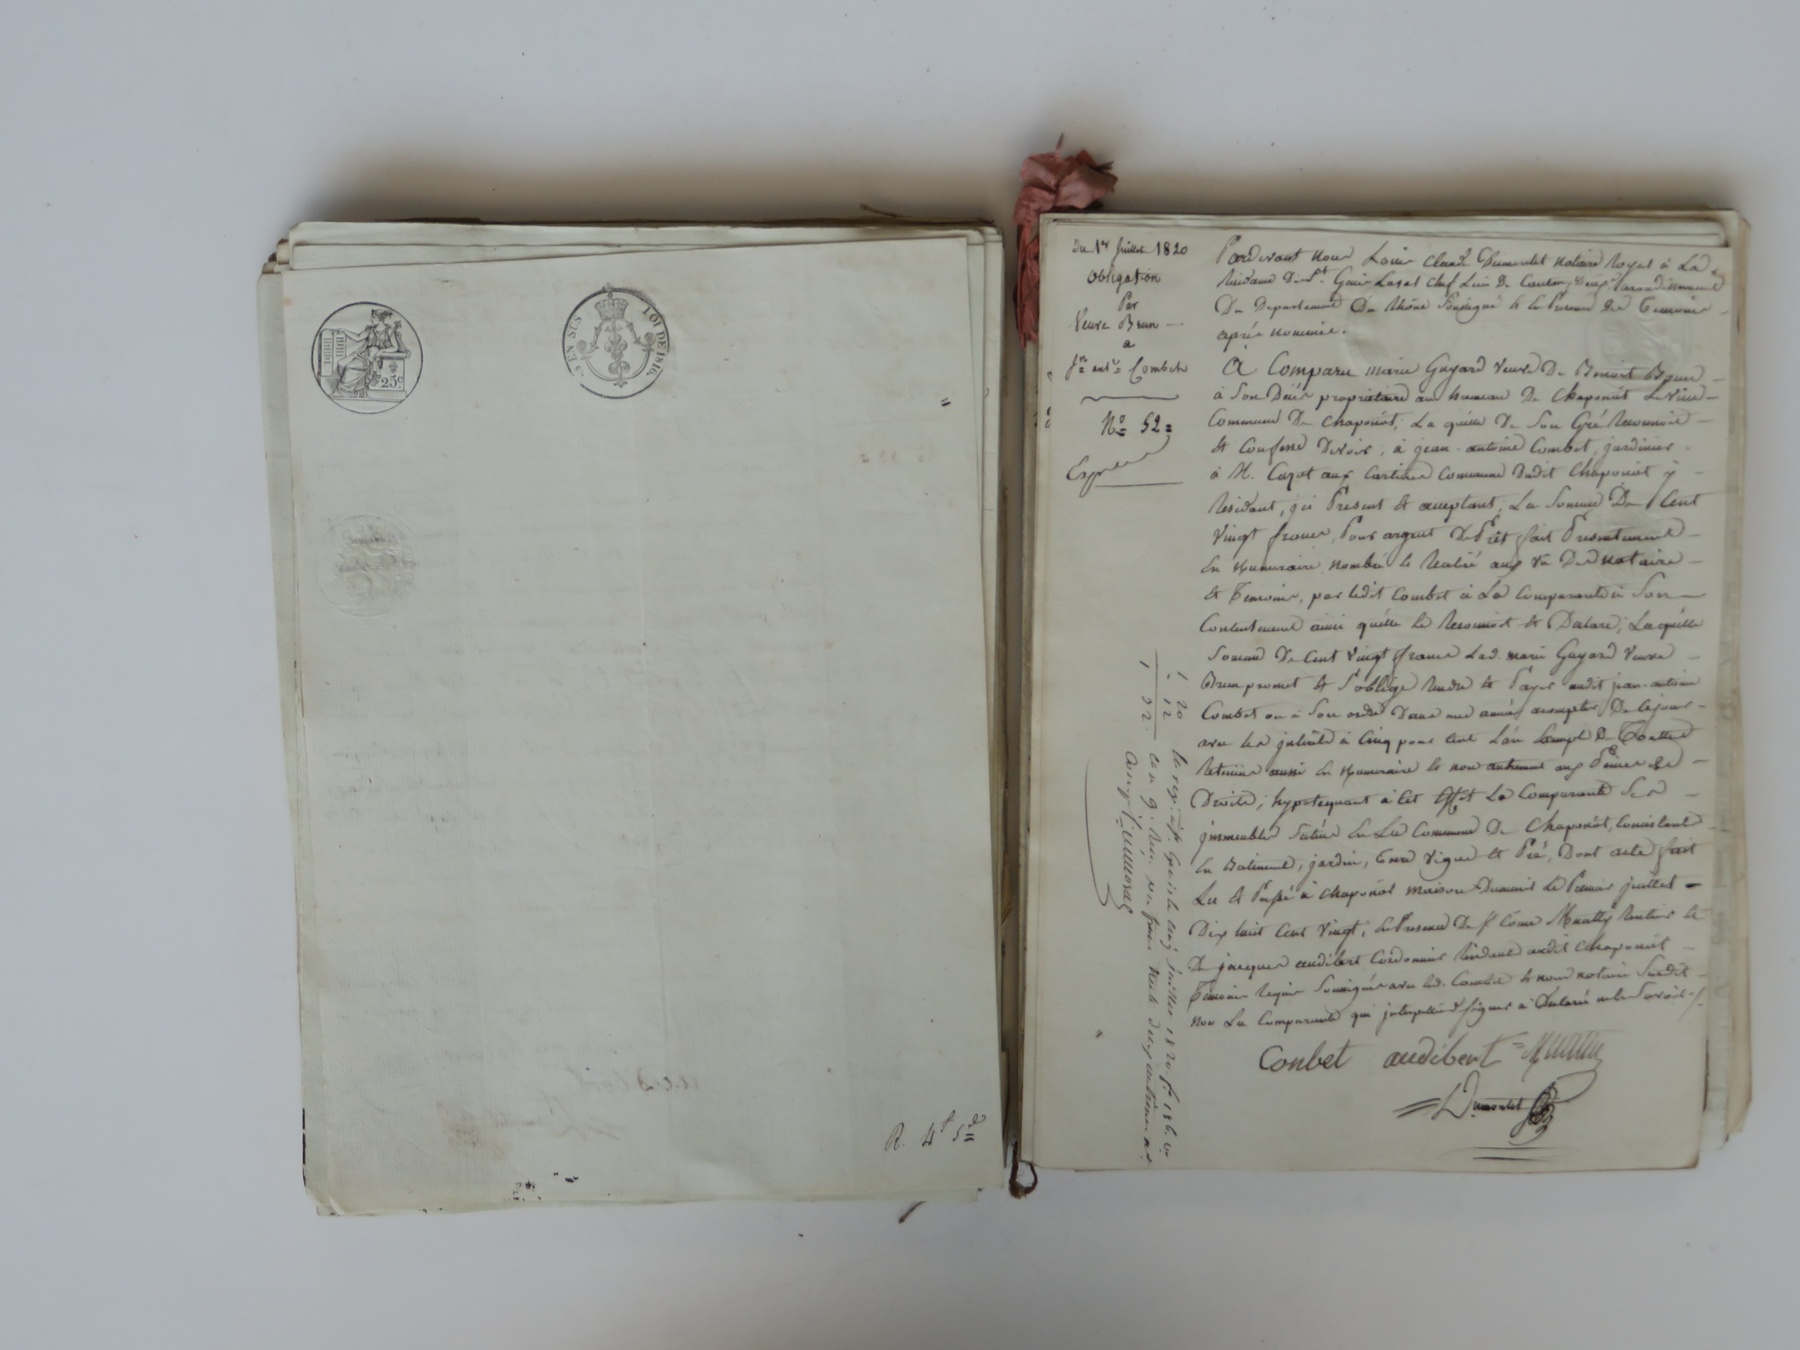 25c
5 EN SUS
LOI DE 1816.
R. 4f 5d
du 1er Juillet 1820
Obligation
Par
Veuve Brun
a
Jn ante Combet
No 52
Exp
Pardevant nous Louis Claude Dumoulet notaire Royal à La
Résidence De St Genis Laval chef Lieu De Canton, Deuxe arondissement
Du Departement Du Rhône Soussigné & En Presence Des Temoins
après nommés.
A Comparu marie Guyard veuve De Benoit Brun
à Son Décés propriétaire au hameau De Chaponôst Le vieux
Commune De Chaponôst, La quelle De Son Gré Reconnoit
& Confesse Devoir, à jean antoine Combet, jardinier
à M. Cazot aux Cartieres Commune Dudit Chaponôst y
Résidant, ici Present & acceptant, La Somme De Cent
Vingt francs, Pour argent De Prêt fait Presentement
En Numeraire nombré & Réalisé aux vû Des notaire
& Temoins, par ledit Combet à La Comparante à Son
Contentement ainsi qu'elle Le Reconnoit & Déclare, Laquelle
Somme De Cent Vingt francs Lad. marie Guyard veuve
Brun promet & S'oblige Rendre & Payer audit jean-antoine
Combet ou à Son ordre Dans une année acompter De Cejour
avec les jntérêts à Cinq pour cent L'an Exempt De Toutes
Retenues aussi En Numeraire & non autrement aux Peines De
Droits, hypotequant à Cet Effet La Comparante Ses
jmmeubles Situés En La Commune De Chaponôst, Consistant
En Batiment, jardin, Terre Vigne & Pré, Dont acte fait
Lu & Passé à Chaponôst maison Dumont Le Premier juillet
Dix huit Cent Vingt, En Presence De Sr Come Rentier &
De jacques audibert Cordonnier Résidant audit Chaponôst
Temoins Requis Soussignés avec led. Combet & nous notaire Susdit
non La Comparante qui jnterpellée De Signer a Déclaré ne le Savoir.
Combet audibert
Dumoulet
1. 20
. 12
1 32
St Genis le cinq juillet 1820 fo 186. vo
Reçu un franc trente deux centimes